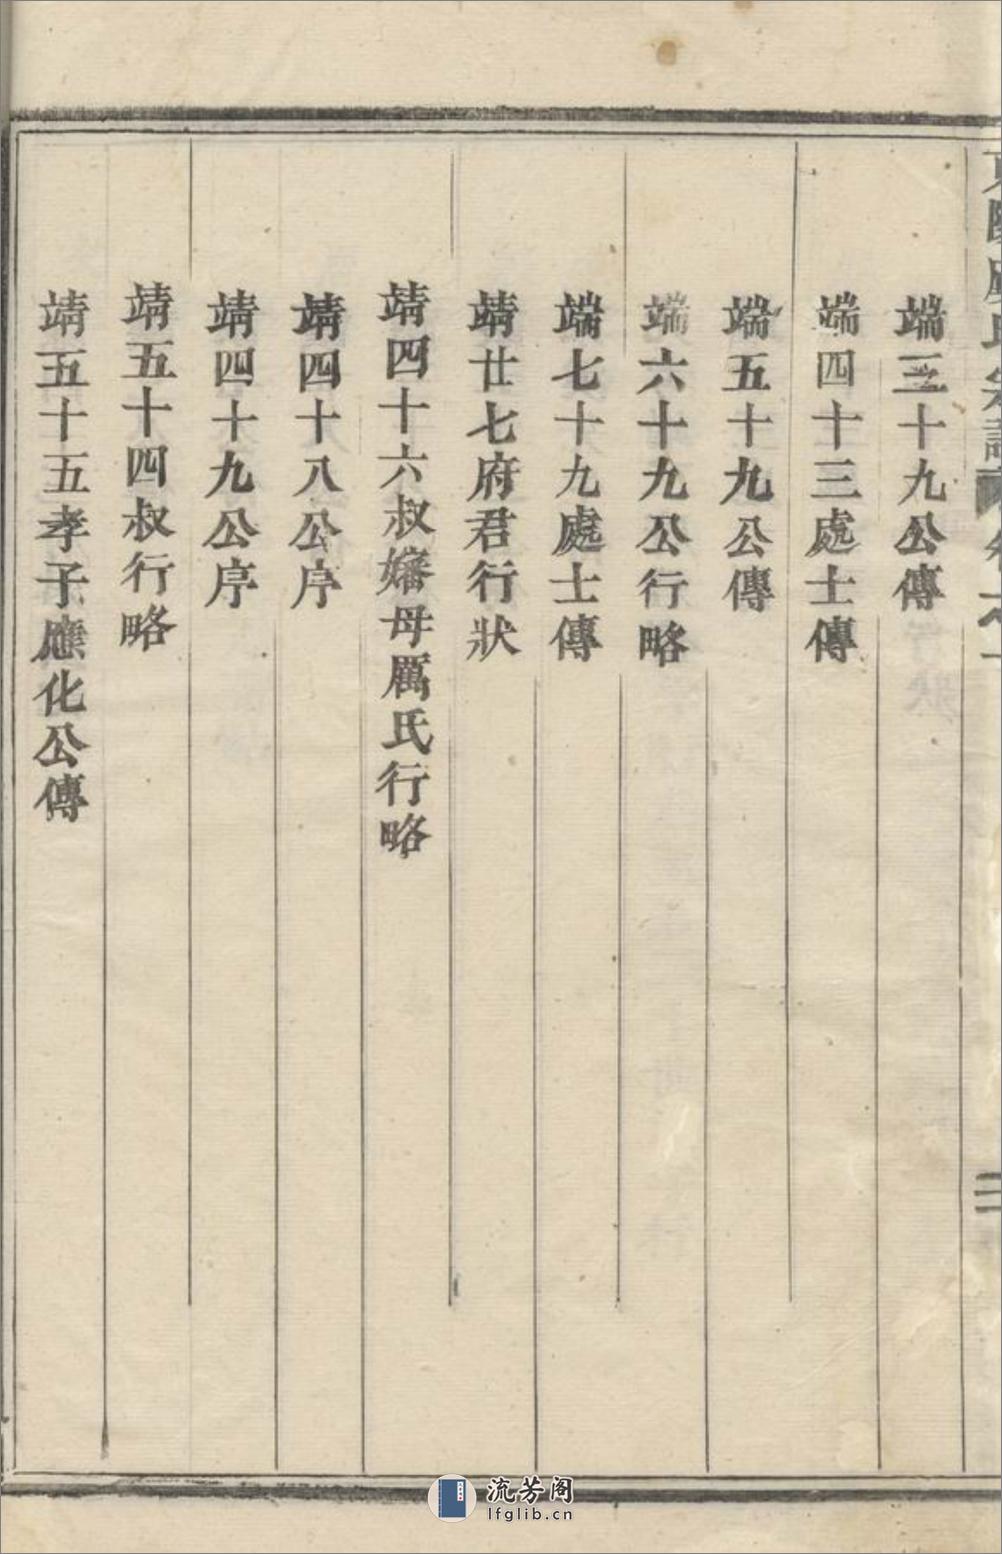 端三十九公傳
端四十三處士傳
端五十九公傳
端六十九公行略
端七十九處士傳
靖廿七府君行狀
靖四十六叔嬸母厲氏行略
靖四十八公序
靖四十九公序
靖五十四叔行略
靖五十五孝子應化公傳
流芳阁
lfglib.cn